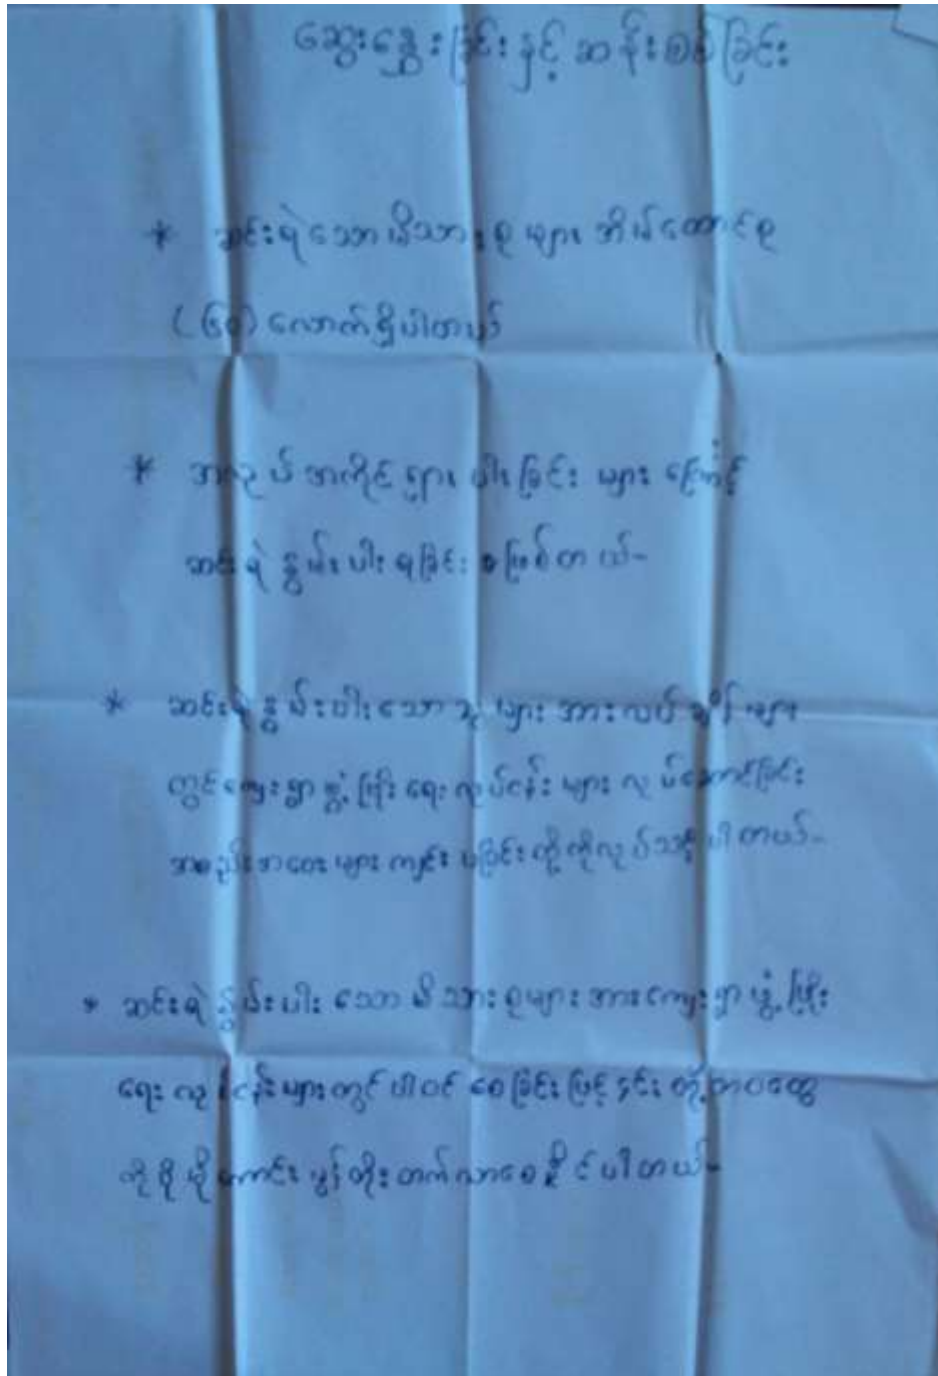 ဆွေးနွေးခြင်းနှင့် ဆန်းစစ်ခြင်း
* ဆင်းရဲသောမိသားစုများ အိမ်ထောင်စု
လောက်ရှိပါတယ်
* အလုပ်အကိုင်ရှားပါးခြင်းများကြောင့်
ဆင်းရဲနွမ်းပါးရခြင်းဖြစ်တယ်-
* ဆင်းရဲနွမ်းပါးသောသူများအားလပ်ချိန်များ
တွင်ကျေးရွာဖွံ့ဖြိုးရေးလုပ်ငန်းများလုပ်ဆောင်ခြင်း
အစည်းအဝေးများကျင်းပခြင်းတို့ကိုလုပ်သင့်ပါတယ်-
* ဆင်းရဲနွမ်းပါးသောမိသားစုများအားကျေးရွာဖွံ့ဖြိုး
ရေးလုပ်ငန်းများတွင်ပါဝင်စေခြင်းဖြင့်၎င်းတို့ဘဝတွေ
ကိုပိုမိုကောင်းမွန်တိုးတက်လာစေနိုင်ပါတယ်-